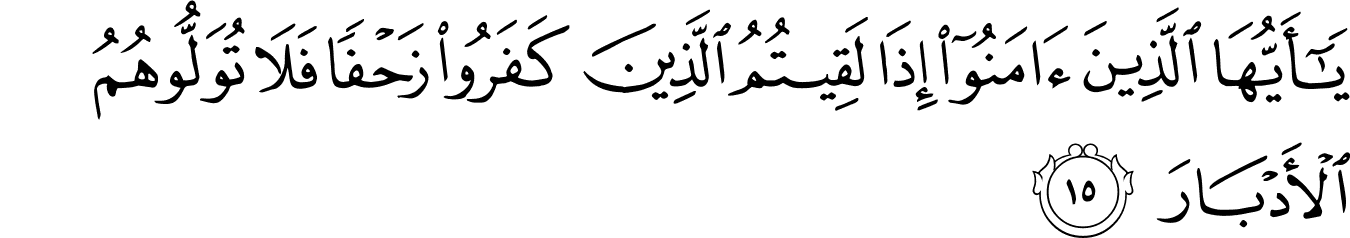 يَـٰٓأَيُّهَا ٱلَّذِينَ ءَامَنُوٓا۟ إِذَا لَقِيتُمُ ٱلَّذِينَ كَفَرُوا۟ زَحْفًا فَلَا تُوَلُّوهُمُ
ٱلْأَدْبَارَ ١٥